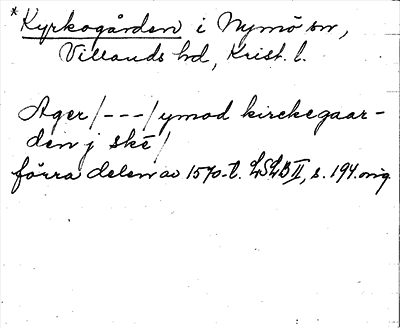 * Kyrkogården i Nymö sn,
Villands hd, Krist. l.
Ager /---/ ymod kirckegaar-
den j ske /
förra delen av 1570-t. LSLB II, s. 194. orig